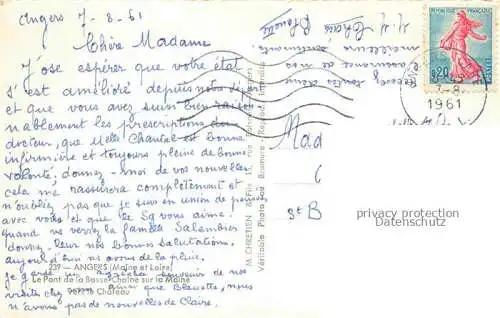 Angers 7-8-61
Chère Madame
J'ose espérer que votre état
s'est amélioré depuis notre départ
et que vous avez suivi bien raison
nablement les prescriptions du
docteur, que Melle Chantal est bonne
infirmière et toujours pleine de bonne
volonté, donnez-moi de vos nouvelles
cela me rassurera complètement et
n'oubliez pas que je suis en union de pensées
avec vous et que le Sg vous aime.
quand vous verrez la famille Salembier
donnez leur nos bonnes salutations.
aujourd'hui nous avons de la pluie.
je garde un souvenir de nos
visites chez ainsi que Blouette, nous
n'avons pas de nouvelles de Claire.
239 - ANGERS (Maine et Loire)
Le Pont de la Basse-Chaîne sur la Maine
vers le Château
M. CHRETIEN
Véritable Photo Bromure - Reproduction Interdite
Recevez toutes deux
et nos
meilleurs sentiments.
REPUBLIQUE FRANÇAISE
0,20
POSTES
7-8
1961
Mad
C
St B
privacy protection
Datenschutz